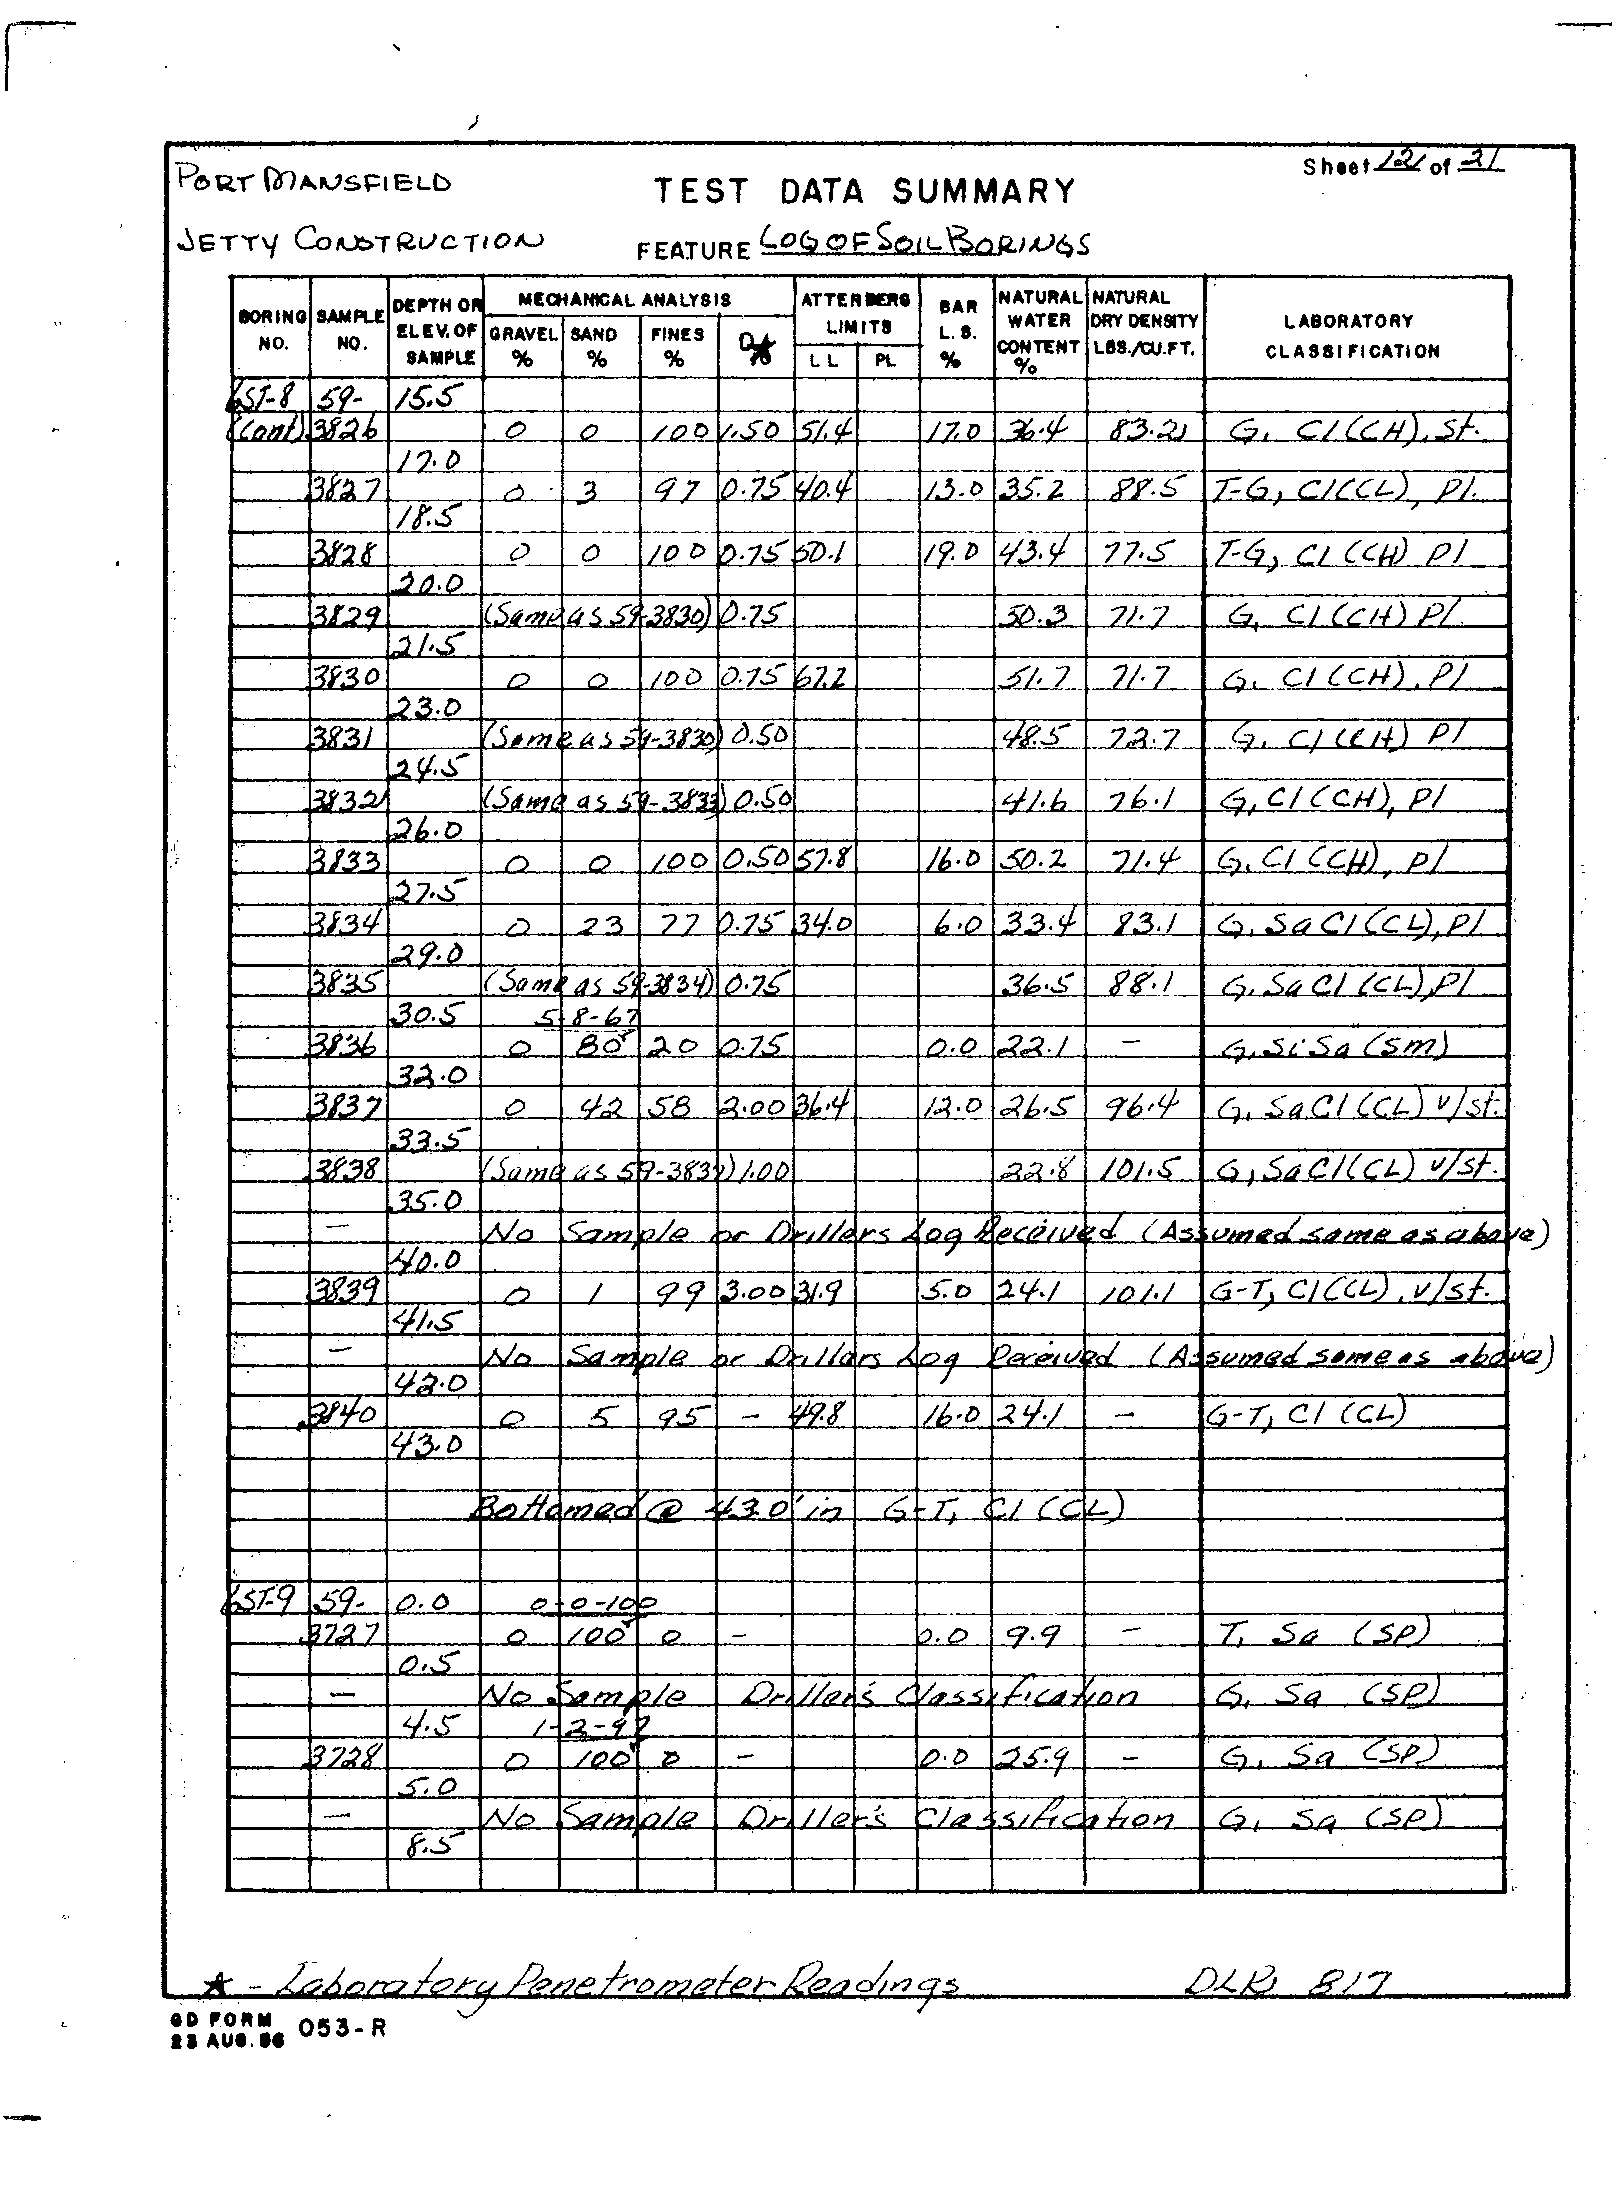 Sheet 12 of 21
PORT MANSFIELD
TEST DATA SUMMARY
JETTY CONSTRUCTION
FEATURE LOG OF SOIL BORINGS
BORING NO. SAMPLE NO. DEPTH OR ELEV. OF SAMPLE MECHANICAL ANALYSIS GRAVEL % SAND % FINES % ★ ATTERBERG LIMITS LL PL BAR L.S. % NATURAL WATER CONTENT % NATURAL DRY DENSITY LBS./CU.FT. LABORATORY CLASSIFICATION
6ST-8 59- 15.5
(Cont) 3826 0 0 100 1.50 51.4 17.0 36.4 83.2 G, Cl (CH), St.
17.0
3827 0 3 97 0.75 40.4 13.0 35.2 88.5 T-G, Cl (CL), Pl.
18.5
3828 0 0 100 0.75 50.1 19.0 43.4 77.5 T-G, Cl (CH) Pl
20.0
3829 (Same as 59-3830) 0.75 50.3 71.7 G, Cl (CH) Pl
21.5
3830 0 0 100 0.75 67.2 51.7 71.7 G, Cl (CH), Pl
23.0
3831 (Same as 59-3830) 0.50 48.5 72.7 G, Cl (CH) Pl
24.5
3832 (Same as 59-3833) 0.50 41.6 76.1 G, Cl (CH), Pl
26.0
3833 0 0 100 0.50 57.8 16.0 50.2 71.4 G, Cl (CH), Pl
27.5
3834 0 23 77 0.75 34.0 6.0 33.4 83.1 G, Sa Cl (CL), Pl
29.0
3835 (Same as 59-3834) 0.75 36.5 88.1 G, Sa Cl (CL), Pl
30.5 5-8-67
3836 0 80 20 0.75 0.0 22.1 – G, Si Sa (SM)
32.0
3837 0 42 58 2.00 36.4 12.0 26.5 96.4 G, Sa Cl (CL) v/st.
33.5
3838 (Same as 59-3837) 1.00 22.8 101.5 G, Sa Cl (CL) v/st.
35.0
– No Sample or Drillers Log Received (Assumed same as above)
40.0
3839 0 1 99 3.00 31.9 5.0 24.1 101.1 G-T, Cl (CL), v/st.
41.5
– No Sample or Drillers Log Received (Assumed same as above)
42.0
3840 0 5 95 – 49.8 16.0 24.1 – G-T, Cl (CL)
43.0
Bottomed @ 43.0' in G-T, Cl (CL)
6ST-9 59- 0.0 0-0-100
3727 0 100 0 – 0.0 9.9 – T, Sa (SP)
0.5
– No Sample Driller's Classification G, Sa (SP)
4.5 1-2-97
3728 0 100 0 – 0.0 25.9 – G, Sa (SP)
5.0
– No Sample Driller's Classification G, Sa (SP)
8.5
★ - Laboratory Penetrometer Readings DLR 817
GD FORM 053-R
23 AUG. 56